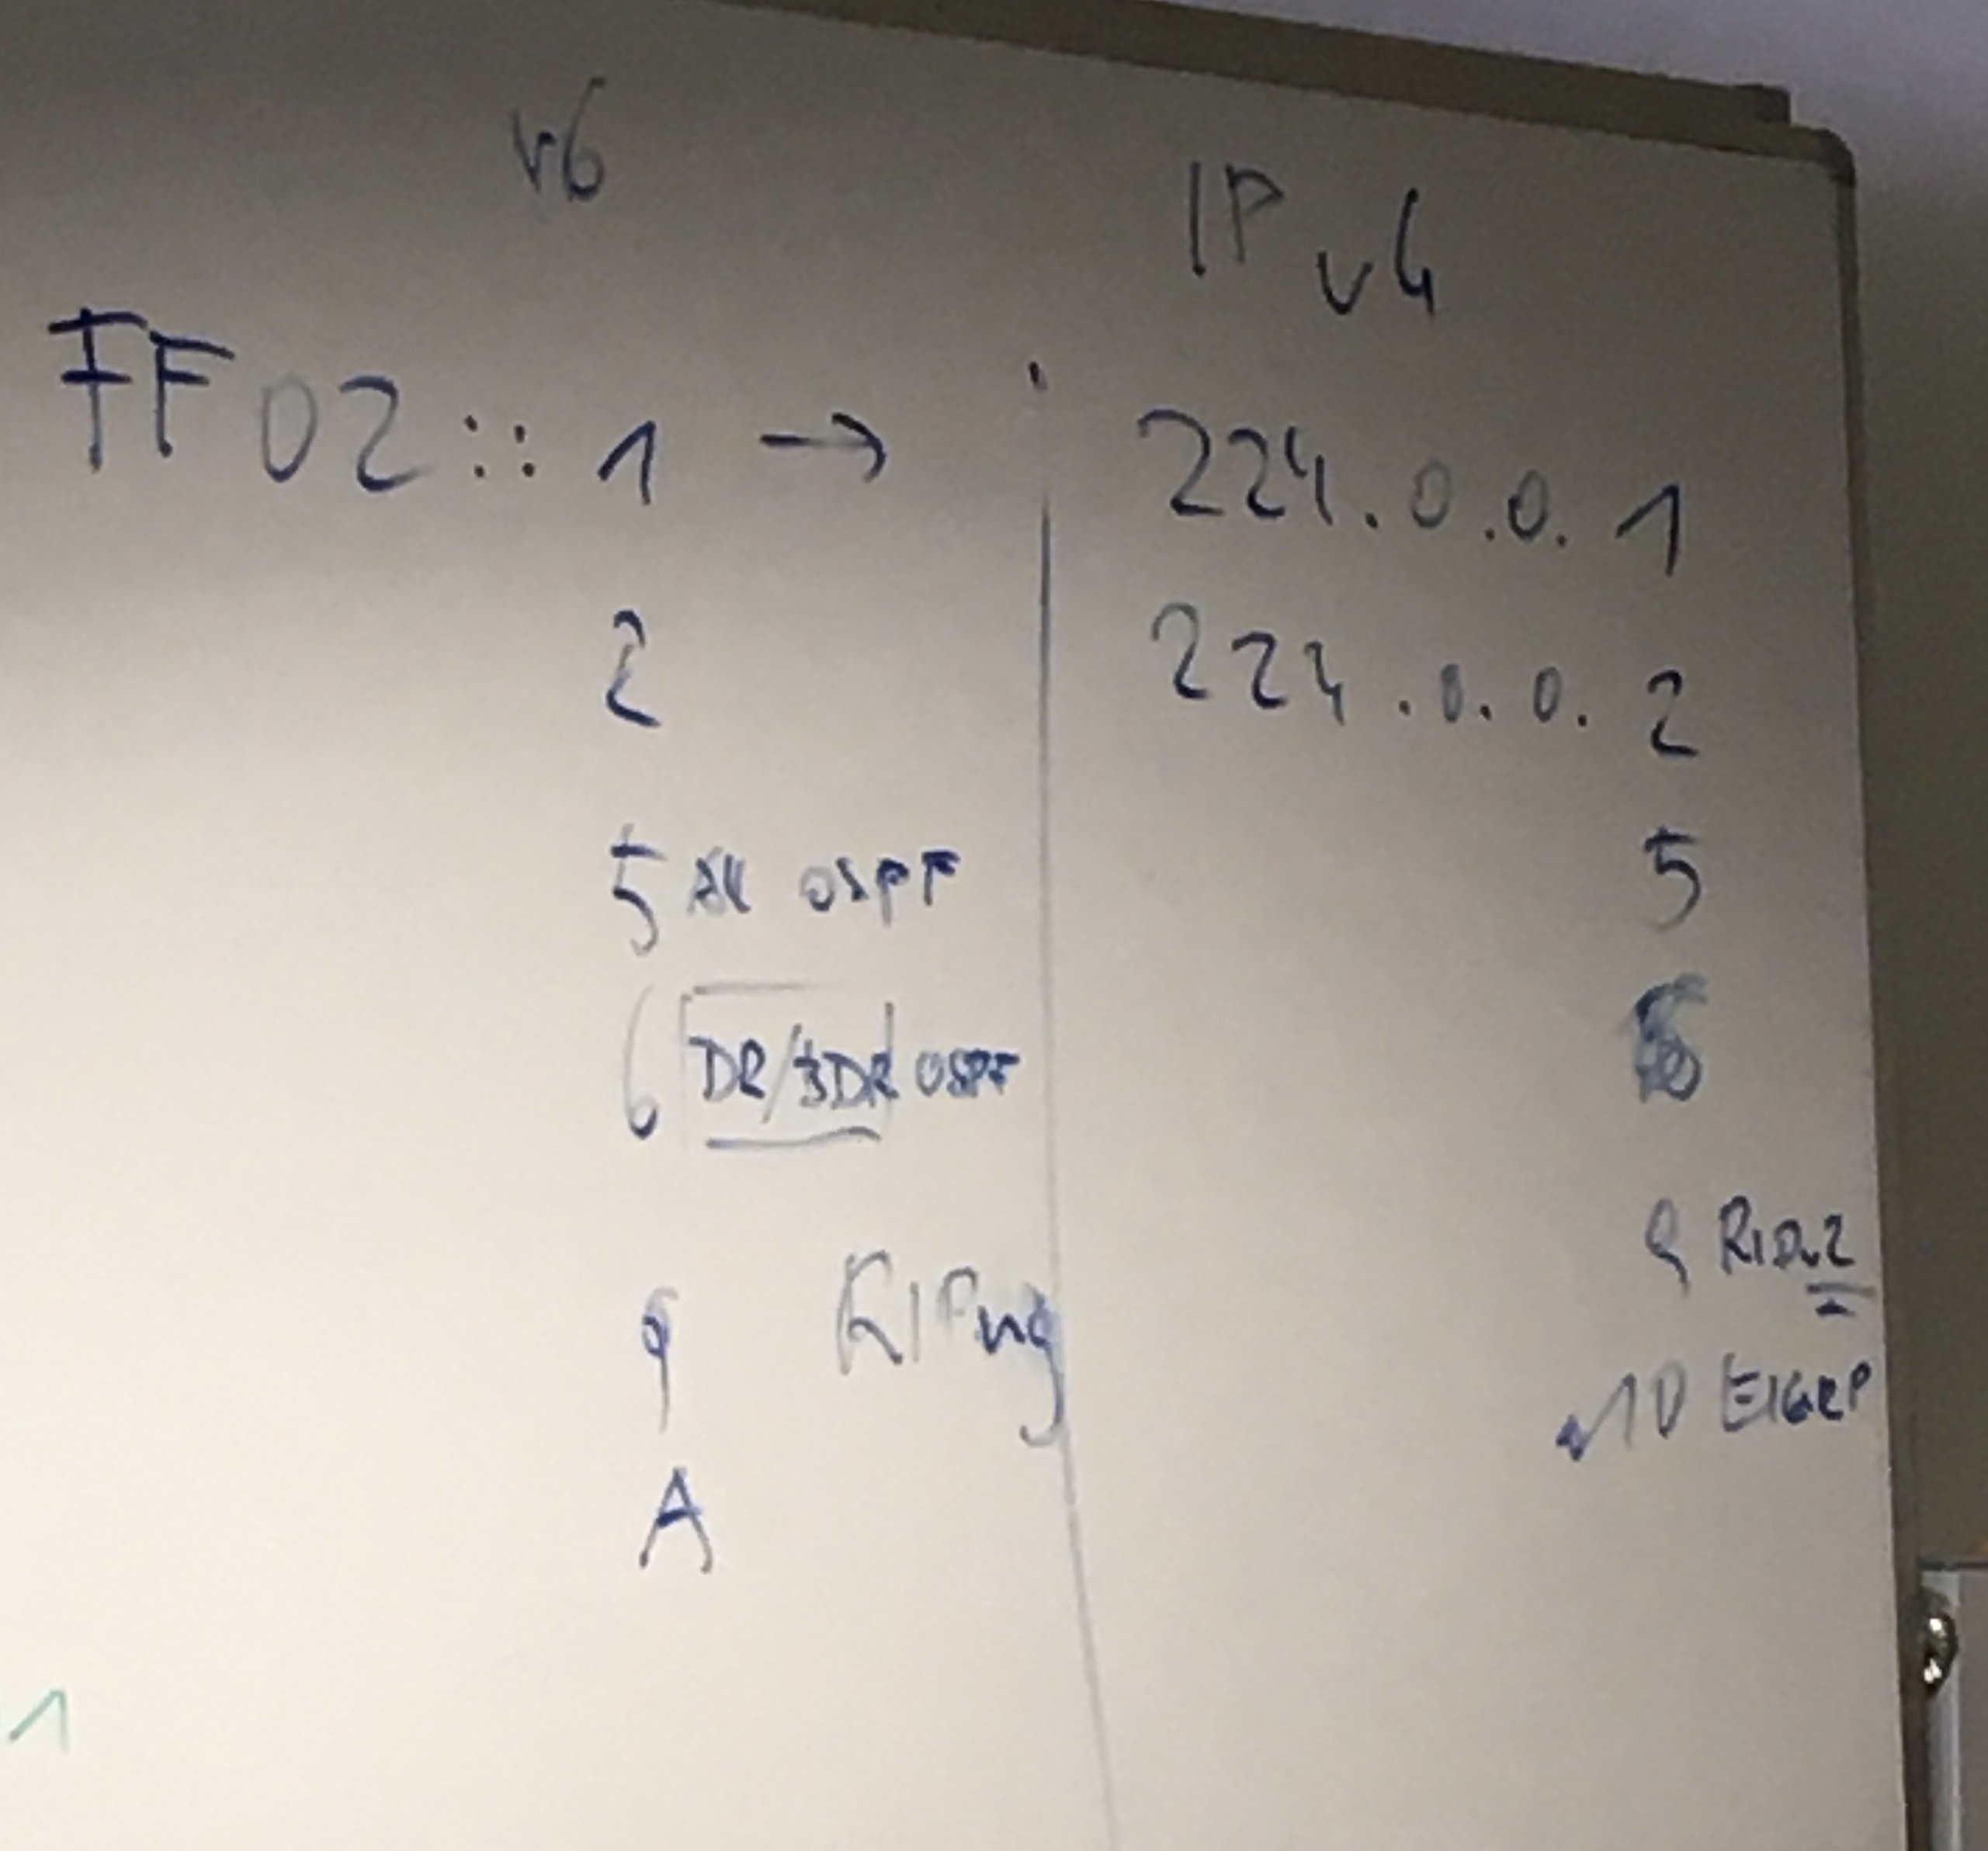 v6 IPv4
FF02::1 → 224.0.0.1
2 224.0.0.2
5 All OSPF 5
6 DR/BDR OSPF 6
9 RIPng 9 RIPv2
A 10 EIGRP
1